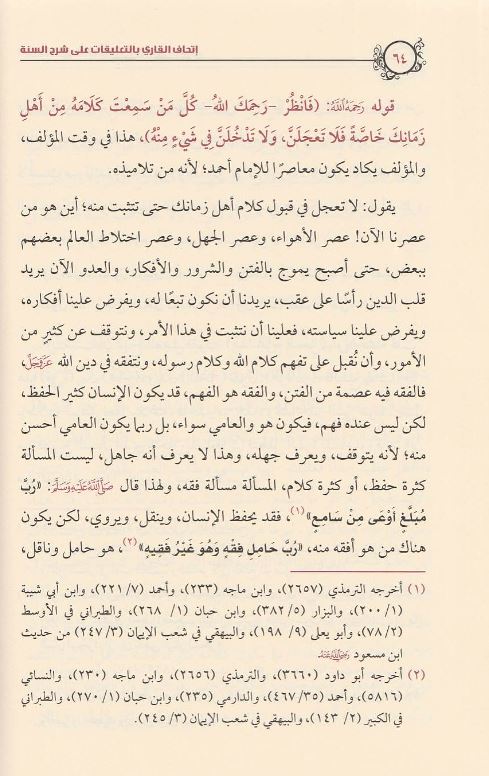 ٦٤
إتحاف القاري بالتعليقات على شرح السنة
قوله رَحِمَهُ اللَّهُ: (فَانْظُرْ -رَحِمَكَ اللهُ- كُلَّ مَنْ سَمِعْتَ كَلَامَهُ مِنْ أَهْلِ
زَمَانِكَ خَاصَّةً فَلَا تَعْجَلَنَّ، وَلَا تَدْخُلَنَّ فِي شَيْءٍ مِنْهُ)، هذا في وقت المؤلف،
والمؤلف يكاد يكون معاصرًا للإمام أحمد؛ لأنه من تلاميذه.
يقول: لا تعجل في قبول كلام أهل زمانك حتى تتثبت منه؛ أين هو من
عصرنا الآن! عصر الأهواء، وعصر الجهل، وعصر اختلاط العالم بعضهم
ببعض، حتى أصبح يموج بالفتن والشرور والأفكار، والعدو الآن يريد
قلب الدين رأسًا على عقب، يريدنا أن نكون تبعًا له، ويفرض علينا أفكاره،
ويفرض علينا سياسته، فعلينا أن نتثبت في هذا الأمر، ونتوقف عن كثيرٍ من
الأمور، وأن نُقبل على تفهم كلام الله وكلام رسوله، ونتفقه في دين الله عَزَّوَجَلَّ،
فالفقه فيه عصمة من الفتن، والفقه هو الفهم، قد يكون الإنسان كثير الحفظ،
لكن ليس عنده فهم، فيكون هو والعامي سواء، بل ربما يكون العامي أحسن
منه؛ لأنه يتوقف، ويعرف جهله، وهذا لا يعرف أنه جاهل، ليست المسألة
كثرة حفظ، أو كثرة كلام، المسألة مسألة فقه، ولهذا قال صَلَّى اللَّهُ عَلَيْهِ وَسَلَّمَ: «رُبَّ
مُبَلَّغٍ أَوْعَى مِنْ سَامِعٍ»(١)، فقد يحفظ الإنسان، وينقل، ويروي، لكن يكون
هناك من هو أفقه منه، «رُبَّ حَامِلِ فِقْهٍ وَهُوَ غَيْرُ فَقِيهٍ»(٢)، هو حامل وناقل،
(١) أخرجه الترمذي (٢٦٥٧)، وابن ماجه (٢٣٣)، وأحمد (٢٢١/٧)، وابن أبي شيبة
(٢٠٠/١)، والبزار (٣٨٢/٥)، وابن حبان (١/ ٢٦٨)، والطبراني في الأوسط
(٧٨/٢)، وأبو يعلى (٩/ ١٩٨)، والبيهقي في شعب الإيمان (٣/ ٢٤٧) من حديث
ابن مسعود رَضِيَ اللَّهُ عَنْهُ.
(٢) أخرجه أبو داود (٣٦٦٠)، والترمذي (٢٦٥٦)، وابن ماجه (٢٣٠)، والنسائي
(٥٨١٦)، وأحمد (٤٦٧/٣٥)، والدارمي (٢٣٥)، وابن حبان (١/ ٢٧٠)، والطبراني
في الكبير (٢/ ١٤٣)، والبيهقي في شعب الإيمان (٣/ ٢٤٥).